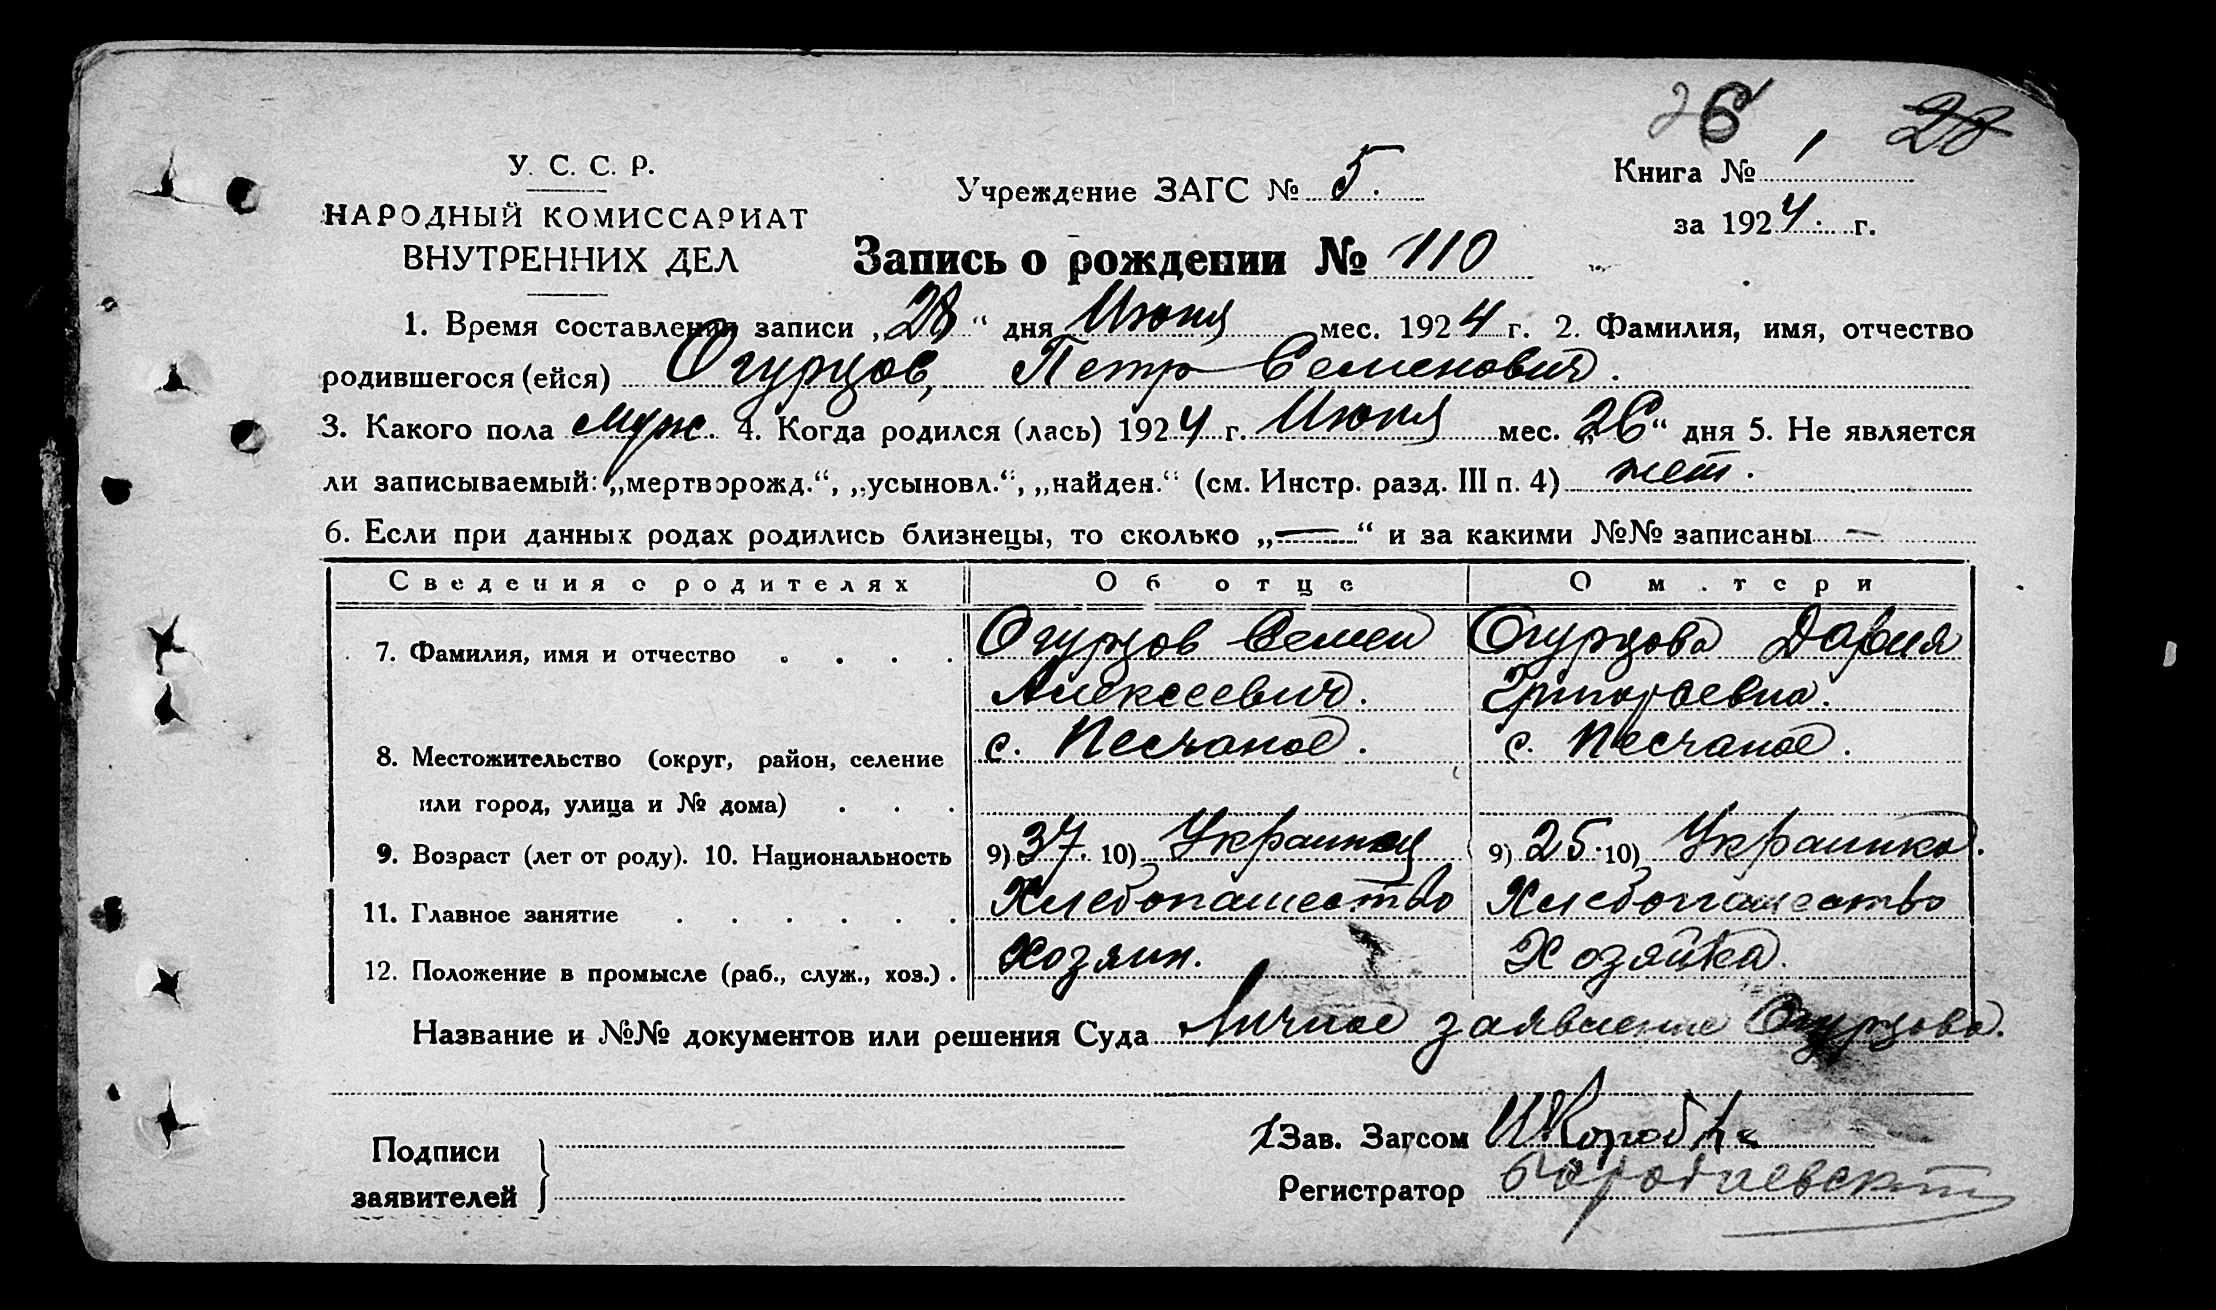 26 28
У. С. С. Р.
НАРОДНЫЙ КОМИССАРИАТ
ВНУТРЕННИХ ДЕЛ
Учреждение ЗАГС № 5.
Книга № 1
за 1924 г.
Запись о рождении № 110
1. Время составления записи „28“ дня Июня мес. 1924 г. 2. Фамилия, имя, отчество
родившегося (ейся) Огурцов, Петр Семенович.
3. Какого пола муж. 4. Когда родился (лась) 1924 г. Июня мес. „26“ дня 5. Не является
ли записываемый: „мертворожд.“, „усыновл.“, „найден.“ (см. Инстр. разд. III п. 4) нет.
6. Если при данных родах родились близнецы, то сколько „—“ и за какими №№ записаны —
Сведения о родителях Об отце О м.тери
7. Фамилия, имя и отчество . . . . Огурцов Семен Огурцова Дария
Алексеевич. Григорьевна.
8. Местожительство (округ, район, селение с. Песчаное. с. Песчаное.
или город, улица и № дома) . . .
9. Возраст (лет от роду). 10. Национальность 9) 37. 10) Украинец 9) 25. 10) Украинка.
11. Главное занятие . . . . . . Хлебопашество Хлебопашество
12. Положение в промысле (раб., служ., хоз.) . Хозяин. Хозяйка.
Название и №№ документов или решения Суда Личное заявление Огурцова.
Подписи
заявителей
Зав. Загсом
Регистратор